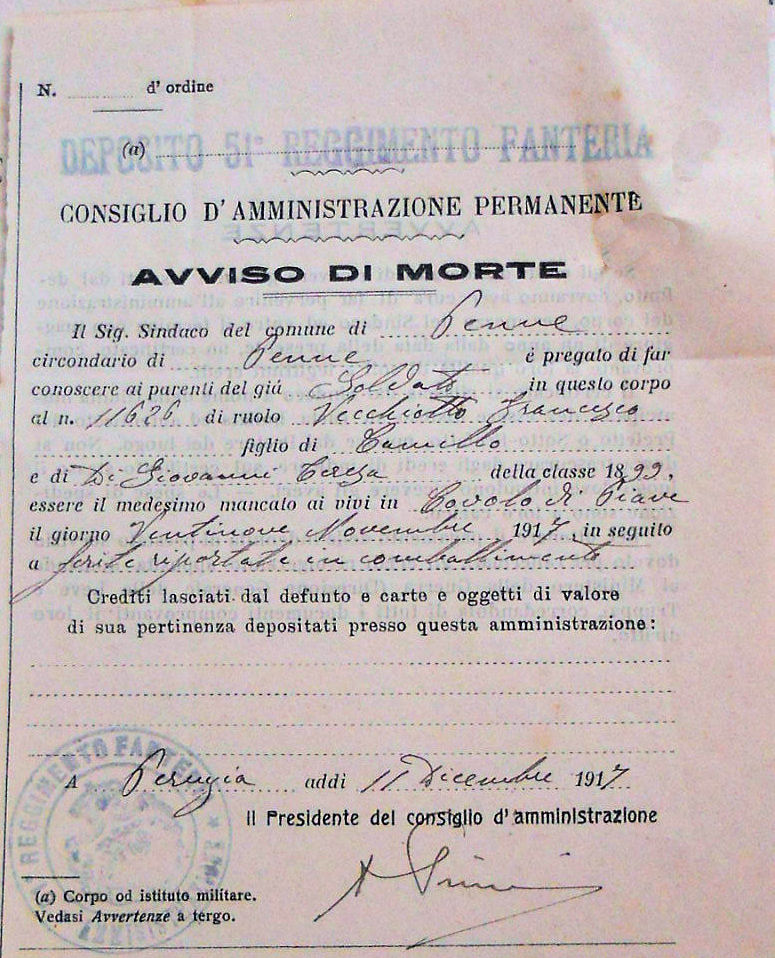 N. d' ordine
DEPOSITO 51° REGGIMENTO FANTERIA
(a)
CONSIGLIO D'AMMINISTRAZIONE PERMANENTE
AVVISO DI MORTE
Il Sig. Sindaco del comune di Penne
circondario di Penne è pregato di far
conoscere ai parenti del già Soldato in questo corpo
al n. 11626 di ruolo Vecchiotti Francesco
figlio di Camillo
e di Di Giovanni Teresa della classe 1899,
essere il medesimo mancato ai vivi in Covolo di Piave
il giorno Ventinove Novembre 1917, in seguito
a ferite riportate in combattimento
Crediti lasciati dal defunto e carte e oggetti di valore
di sua pertinenza depositati presso questa amministrazione:
A Perugia addì 11 Dicembre 1917
Il Presidente del consiglio d'amministrazione
REGGIMENTO FANTERIA
(a) Corpo od istituto militare.
Vedasi Avvertenze a tergo.